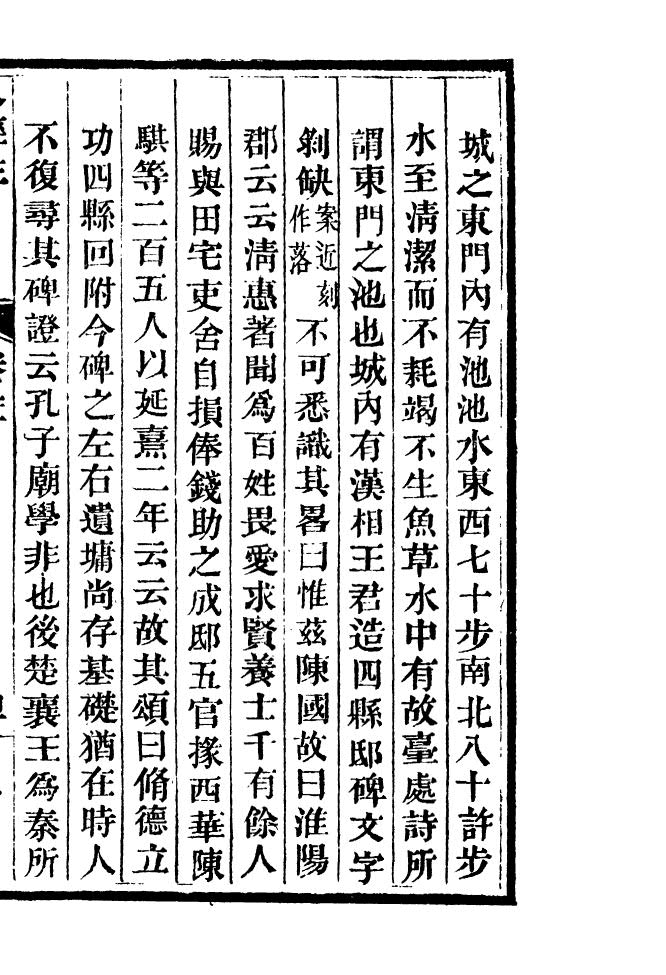 城之東門內有池池水東西七十步南北八十許步
水至淸潔而不耗竭不生魚草水中有故臺處詩所
謂東門之池也城內有漢相王君造四縣邸碑文字
剝缺案近刻作落不可悉識其畧曰惟茲陳國故曰淮陽
郡云云淸惠著聞爲百姓畏愛求賢養士千有餘人
賜與田宅吏舍自損俸錢助之成邸五官掾西華陳
騏等二百五人以延熹二年云云故其頌曰脩德立
功四縣回附今碑之左右遺墉尚存基礎猶在時人
不復尋其碑證云孔子廟學非也後楚襄王爲秦所